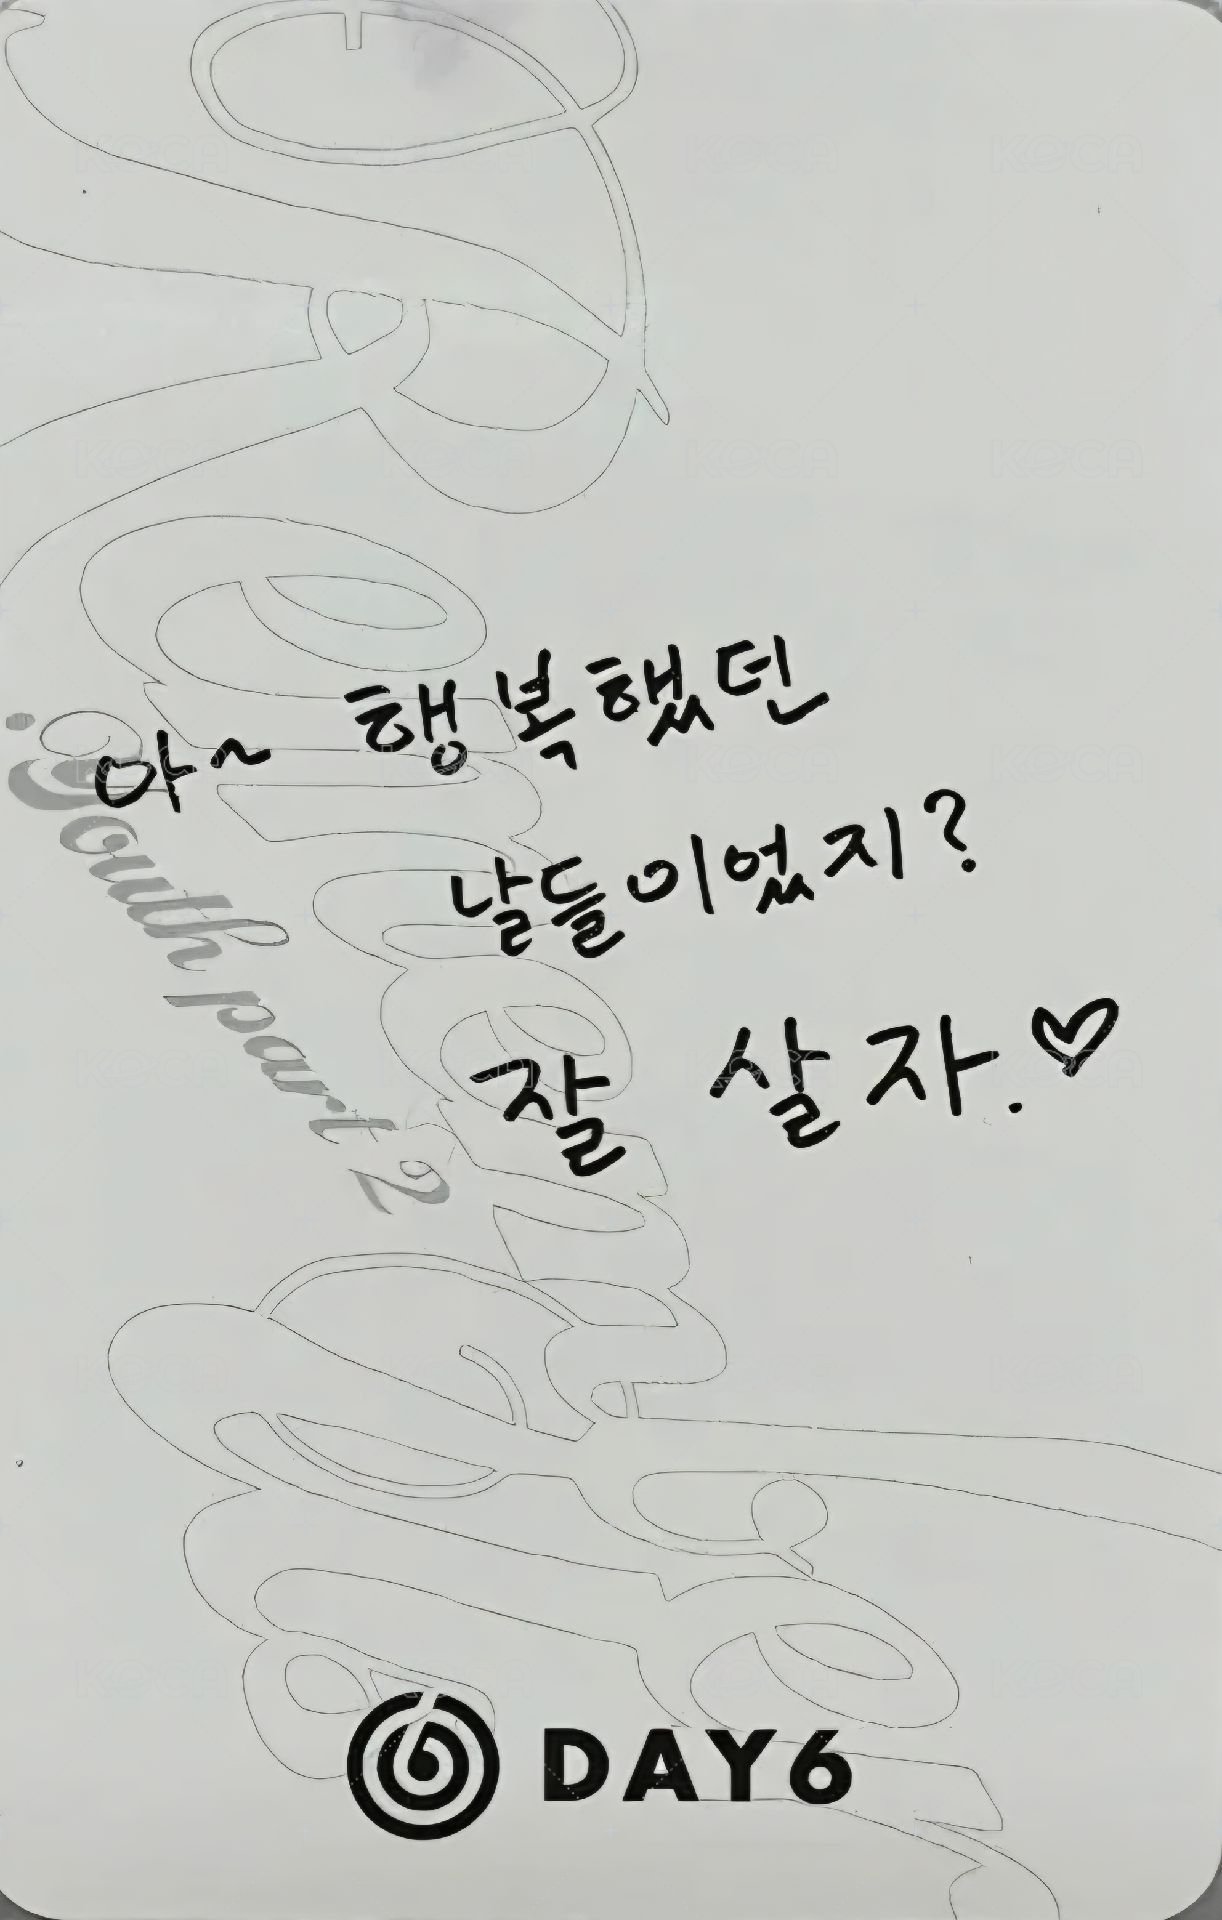 아~ 행복했던
날들이었지?
잘 살자.♡
: Youth part 2
Remember Us
DAY6